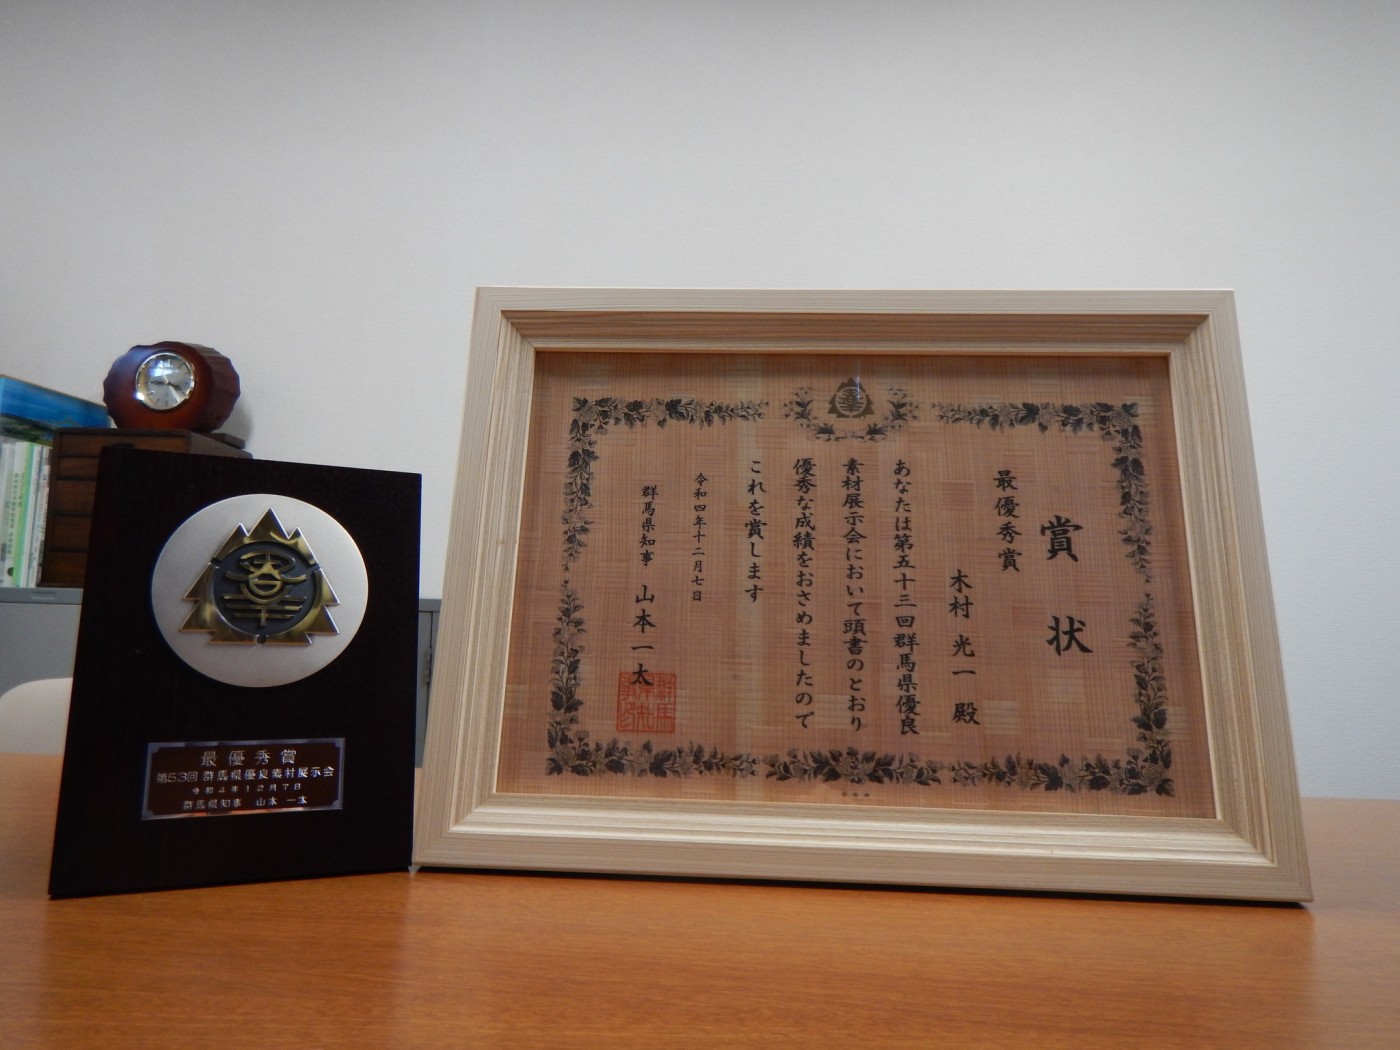 最優秀賞
第53回 群馬県優良素材展示会
令和4年12月7日
群馬県知事 山本 一太
賞状
最優秀賞
木村 光一 殿
あなたは第五十三回群馬県優良
素材展示会において頭書のとおり
優秀な成績をおさめましたので
これを賞します
令和四年十二月七日
群馬県知事 山本一太